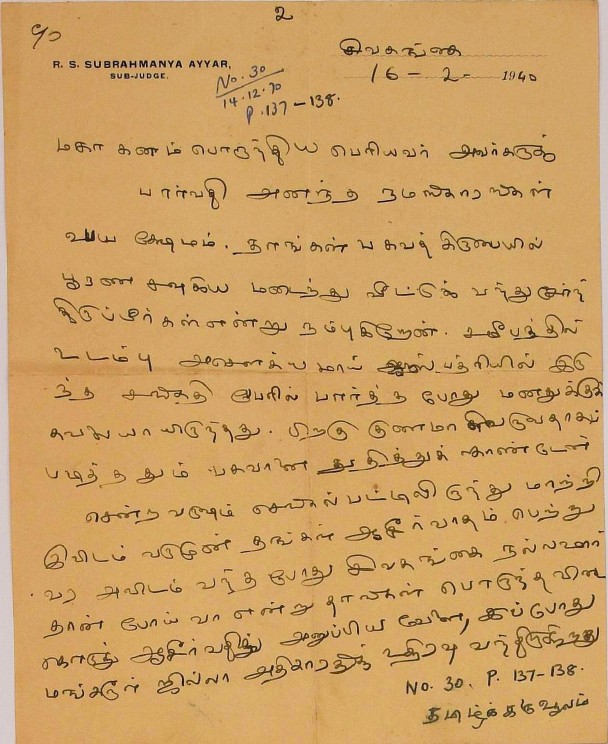 2
90
R. S. SUBRAHMANYA AYYAR,
SUB-JUDGE.
சிவகங்கை
16 - 2 - 1940
No. 30
14.12.70
P. 137-138.
மகா கனம் பொருந்திய பெரியவர் அவர்களுக்கு
பார்வதி அனந்த நமஸ்காரங்கள்
உபய க்ஷேமம். தாங்கள் பகவத் கிருபையில்
பூரண சவுகிய மடைந்து வீட்டுக்கு வந்து சேர்ந்
திருப்பீர்கள் என்று நம்புகிறேன். சமீபத்தில்
உடம்பு அசௌக்யமாய் ஆஸ்பத்ரியில் இரு
ந்த சங்கதி பேபரில் பார்த்த போது மனதுக்கு
கவலையாயிருந்தது. பிறகு குணமாகி வருவதாகப்
படித்ததும் பகவானை துதித்துக் கொண்டேன்
சென்ற வருஷம் செங்கல்பட்டிலிருந்து மாற்றி
இவிடம் வருமுன் தங்கள் ஆசீர்வாதம் பெற்று
வர அவிடம் வந்த போது சிவகங்கை நல்ல ஊர்
தான் போய் வா என்று தாங்கள் பொருந்திய
ஆசீர்வதித்து அனுப்பிய வேளை, இப்போது
மங்களூர் ஜில்லா அதிகாரத்துக்கு உத்திரவு வந்திருக்கிறது
No. 30. P. 137-138.
தமிழ்க்கருவூலம்